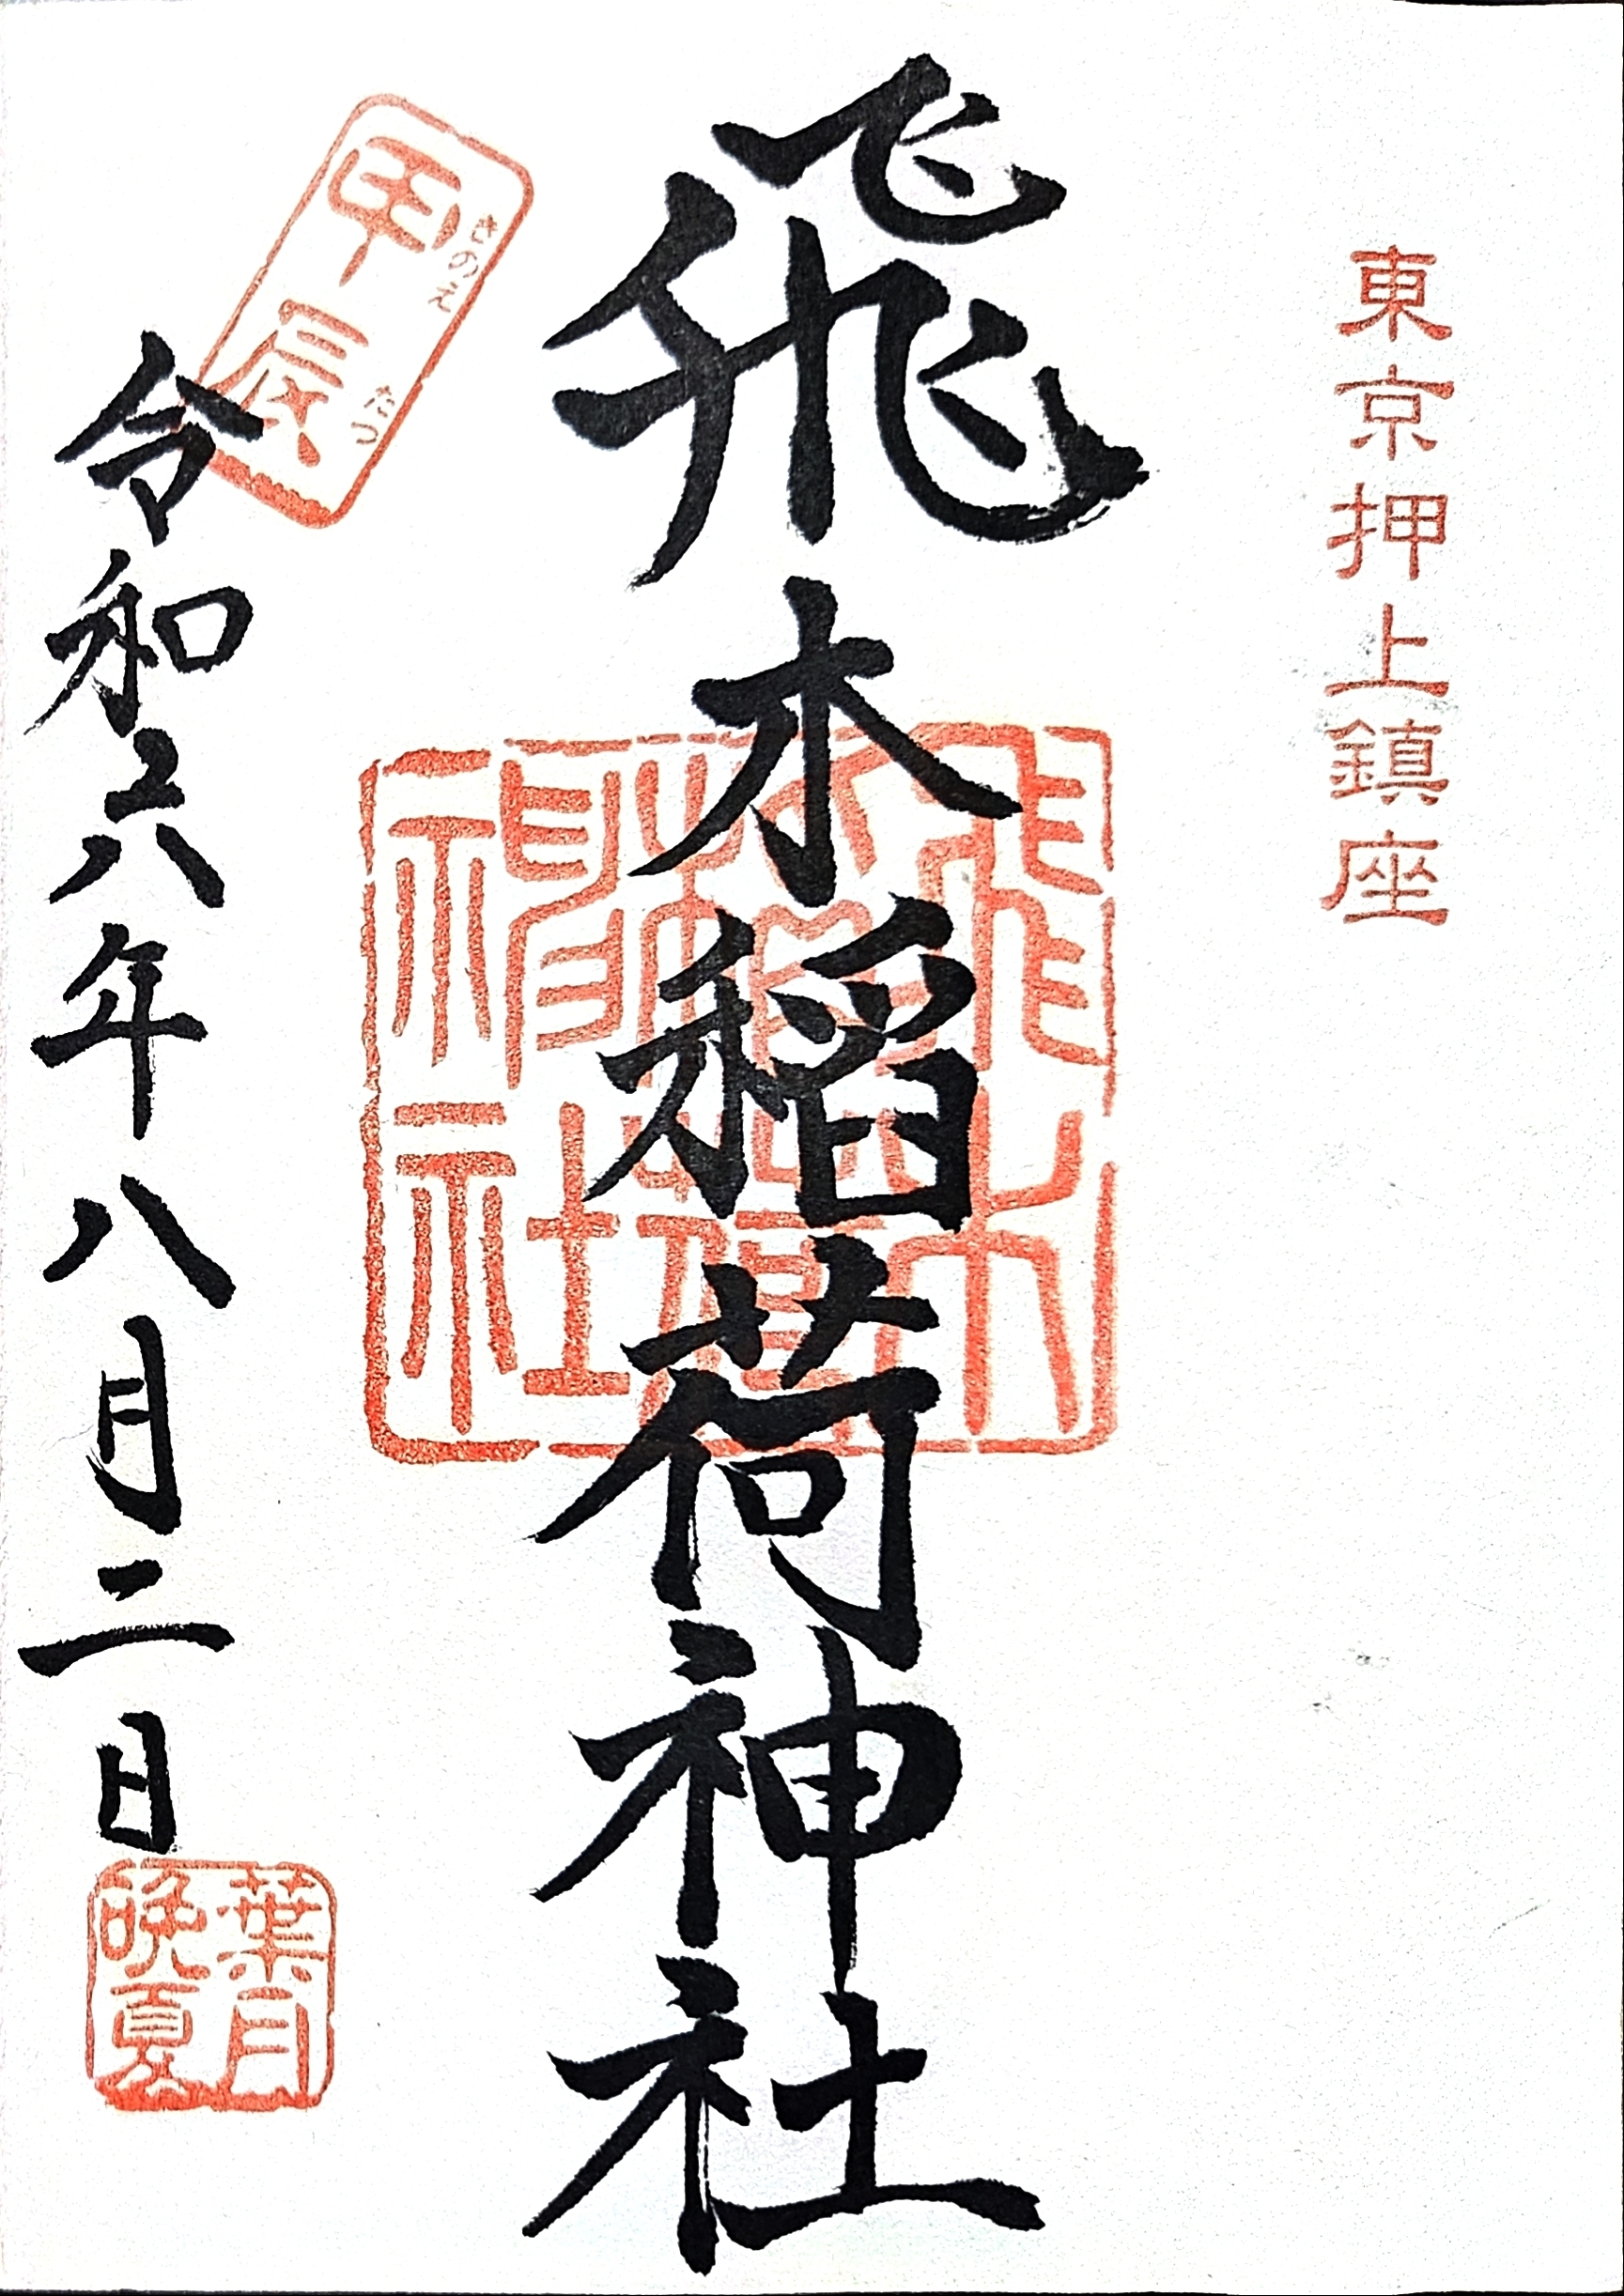 東京押上鎮座
飛木稲荷神社
飛木
稲荷
神社
甲辰
きのえ たつ
令和六年八月二日
葉月
晩夏